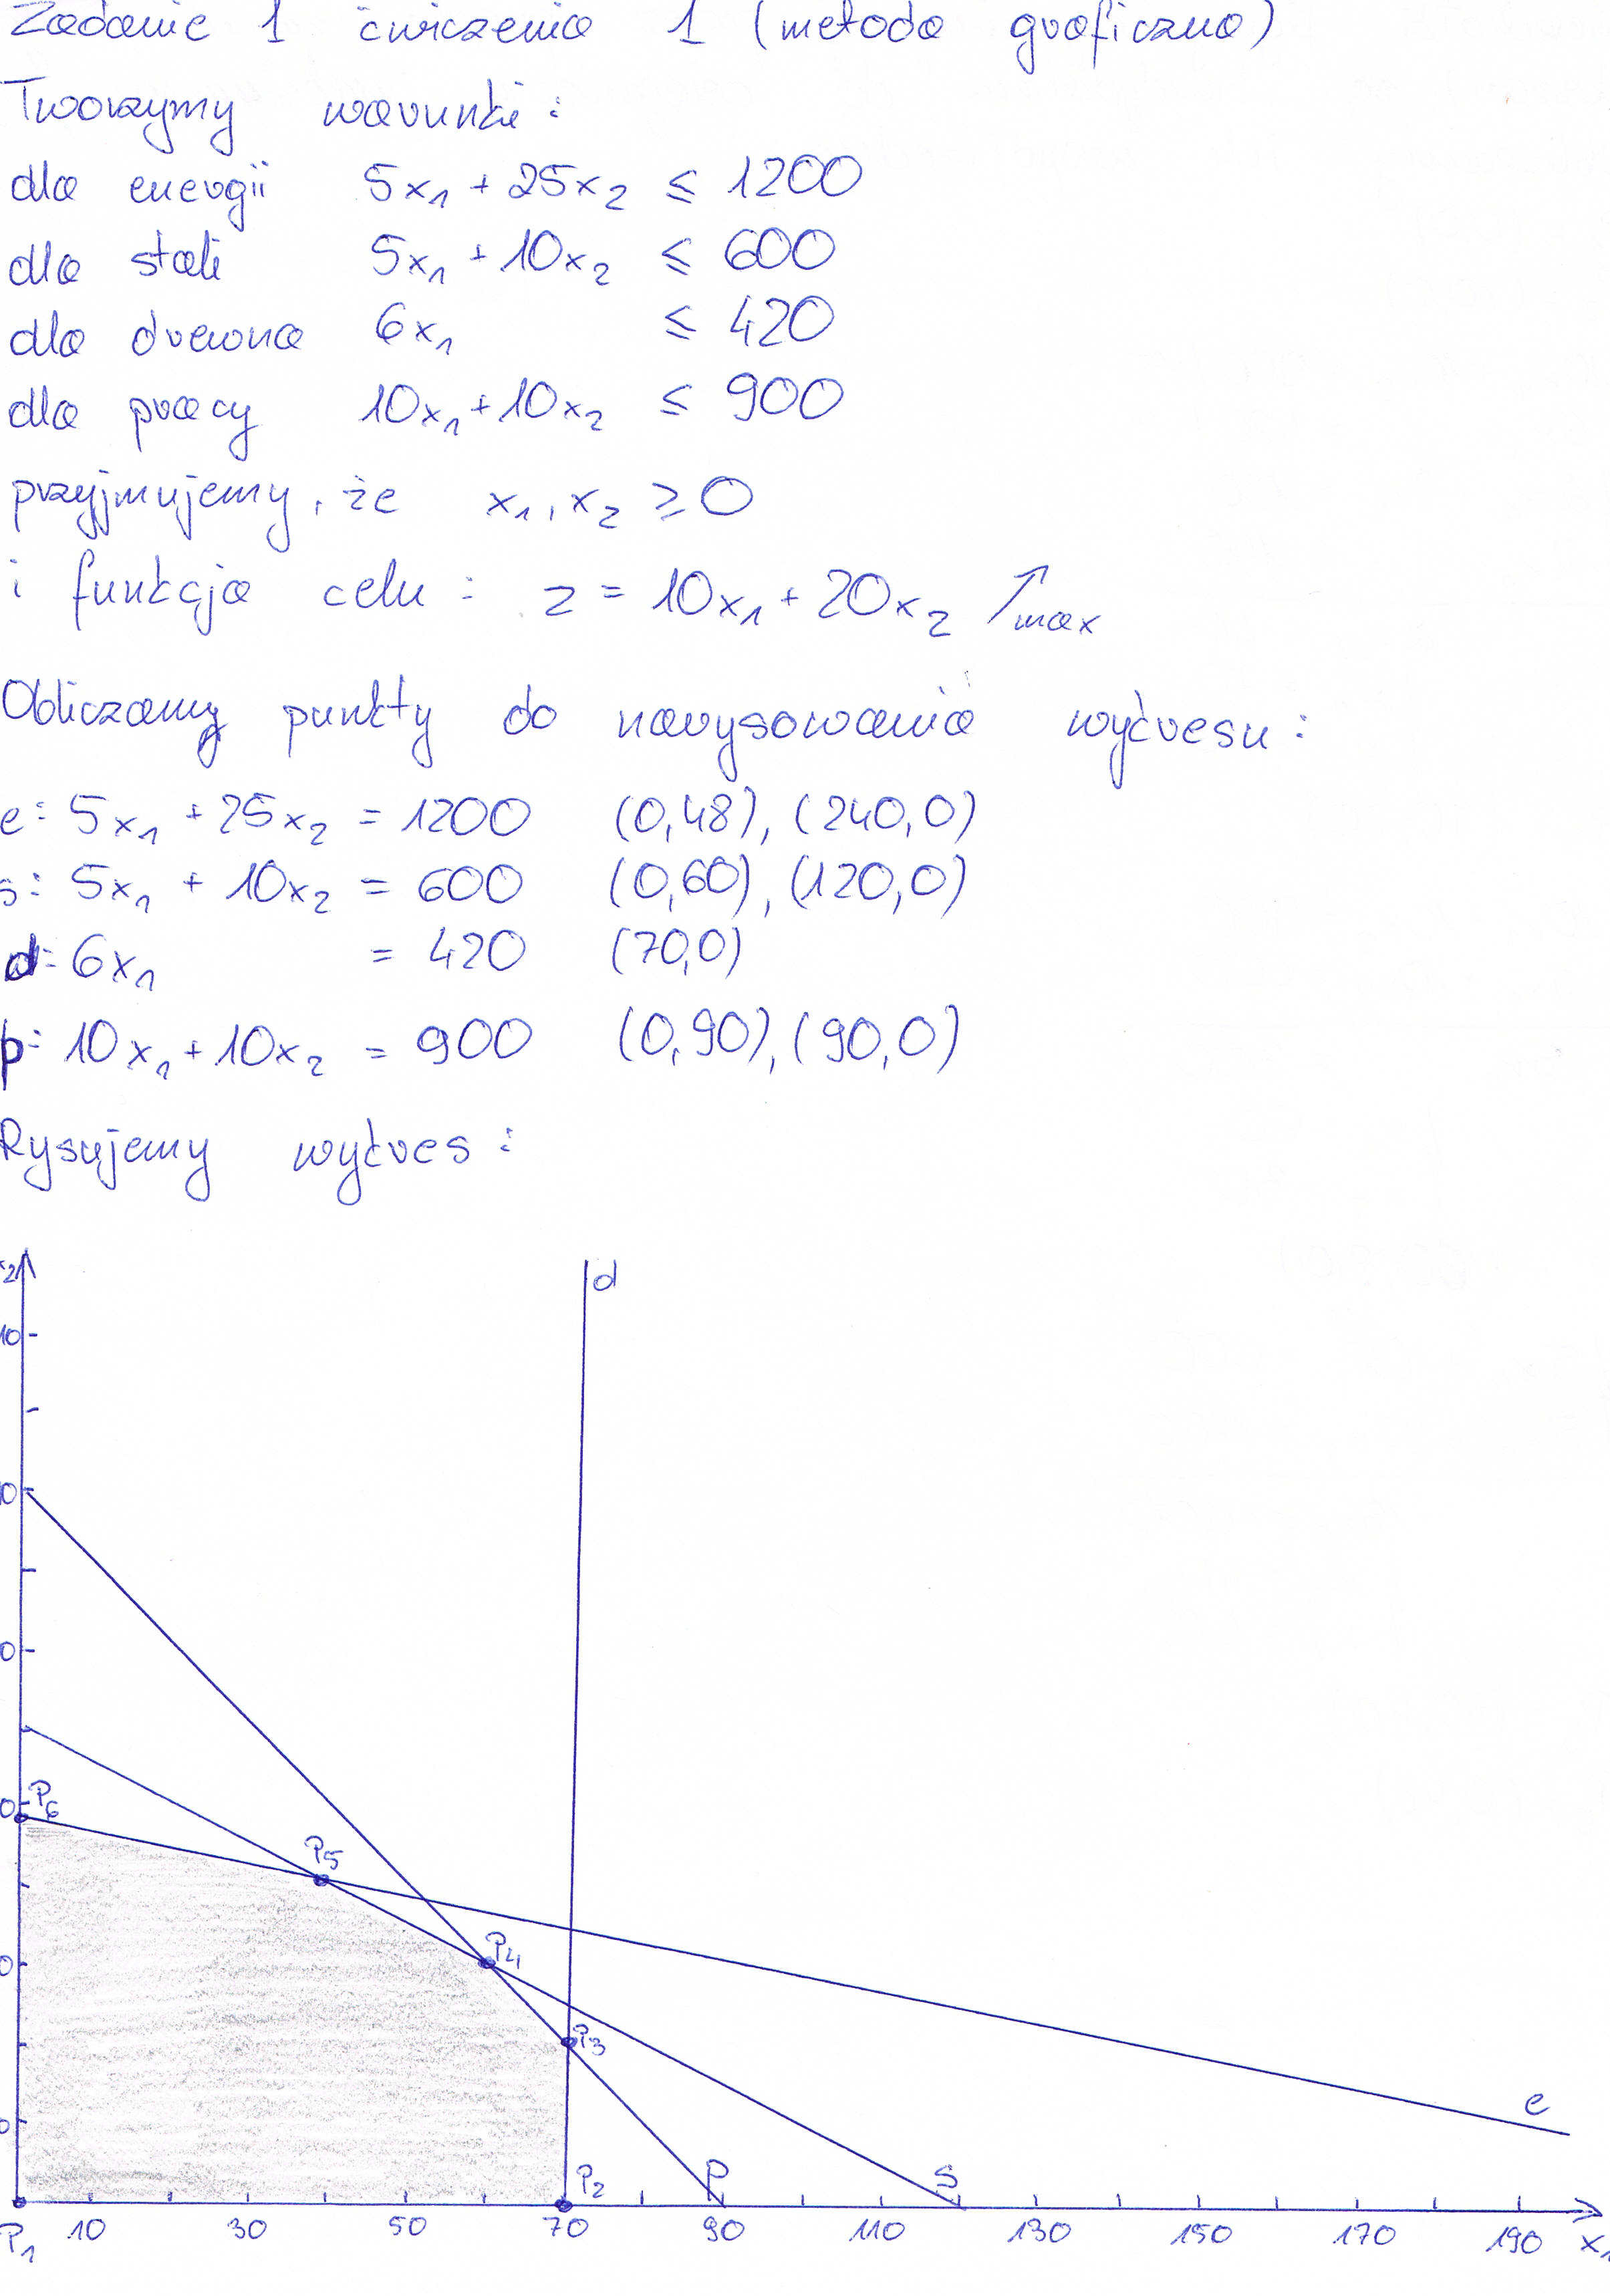 Zadanie 1 ćwiczenia 1 (metoda graficzna)
Tworzymy warunki:
dla energii 5x₁ + 25x₂ ≤ 1200
dla stali 5x₁ + 10x₂ ≤ 600
dla drewna 6x₁ ≤ 420
dla pracy 10x₁ + 10x₂ ≤ 900
przyjmujemy, że x₁, x₂ ≥ 0
i funkcja celu: z = 10x₁ + 20x₂ ↗max
Obliczamy punkty do narysowania wykresu:
e: 5x₁ + 25x₂ = 1200 (0,48), (240,0)
s: 5x₁ + 10x₂ = 600 (0,60), (120,0)
d: 6x₁ = 420 (70,0)
p: 10x₁ + 10x₂ = 900 (0,90), (90,0)
Rysujemy wykres:
d
P₆
P₅
P₄
P₃
e
P₂
p
s
P₁ 10 30 50 70 90 110 130 150 170 190 x₁